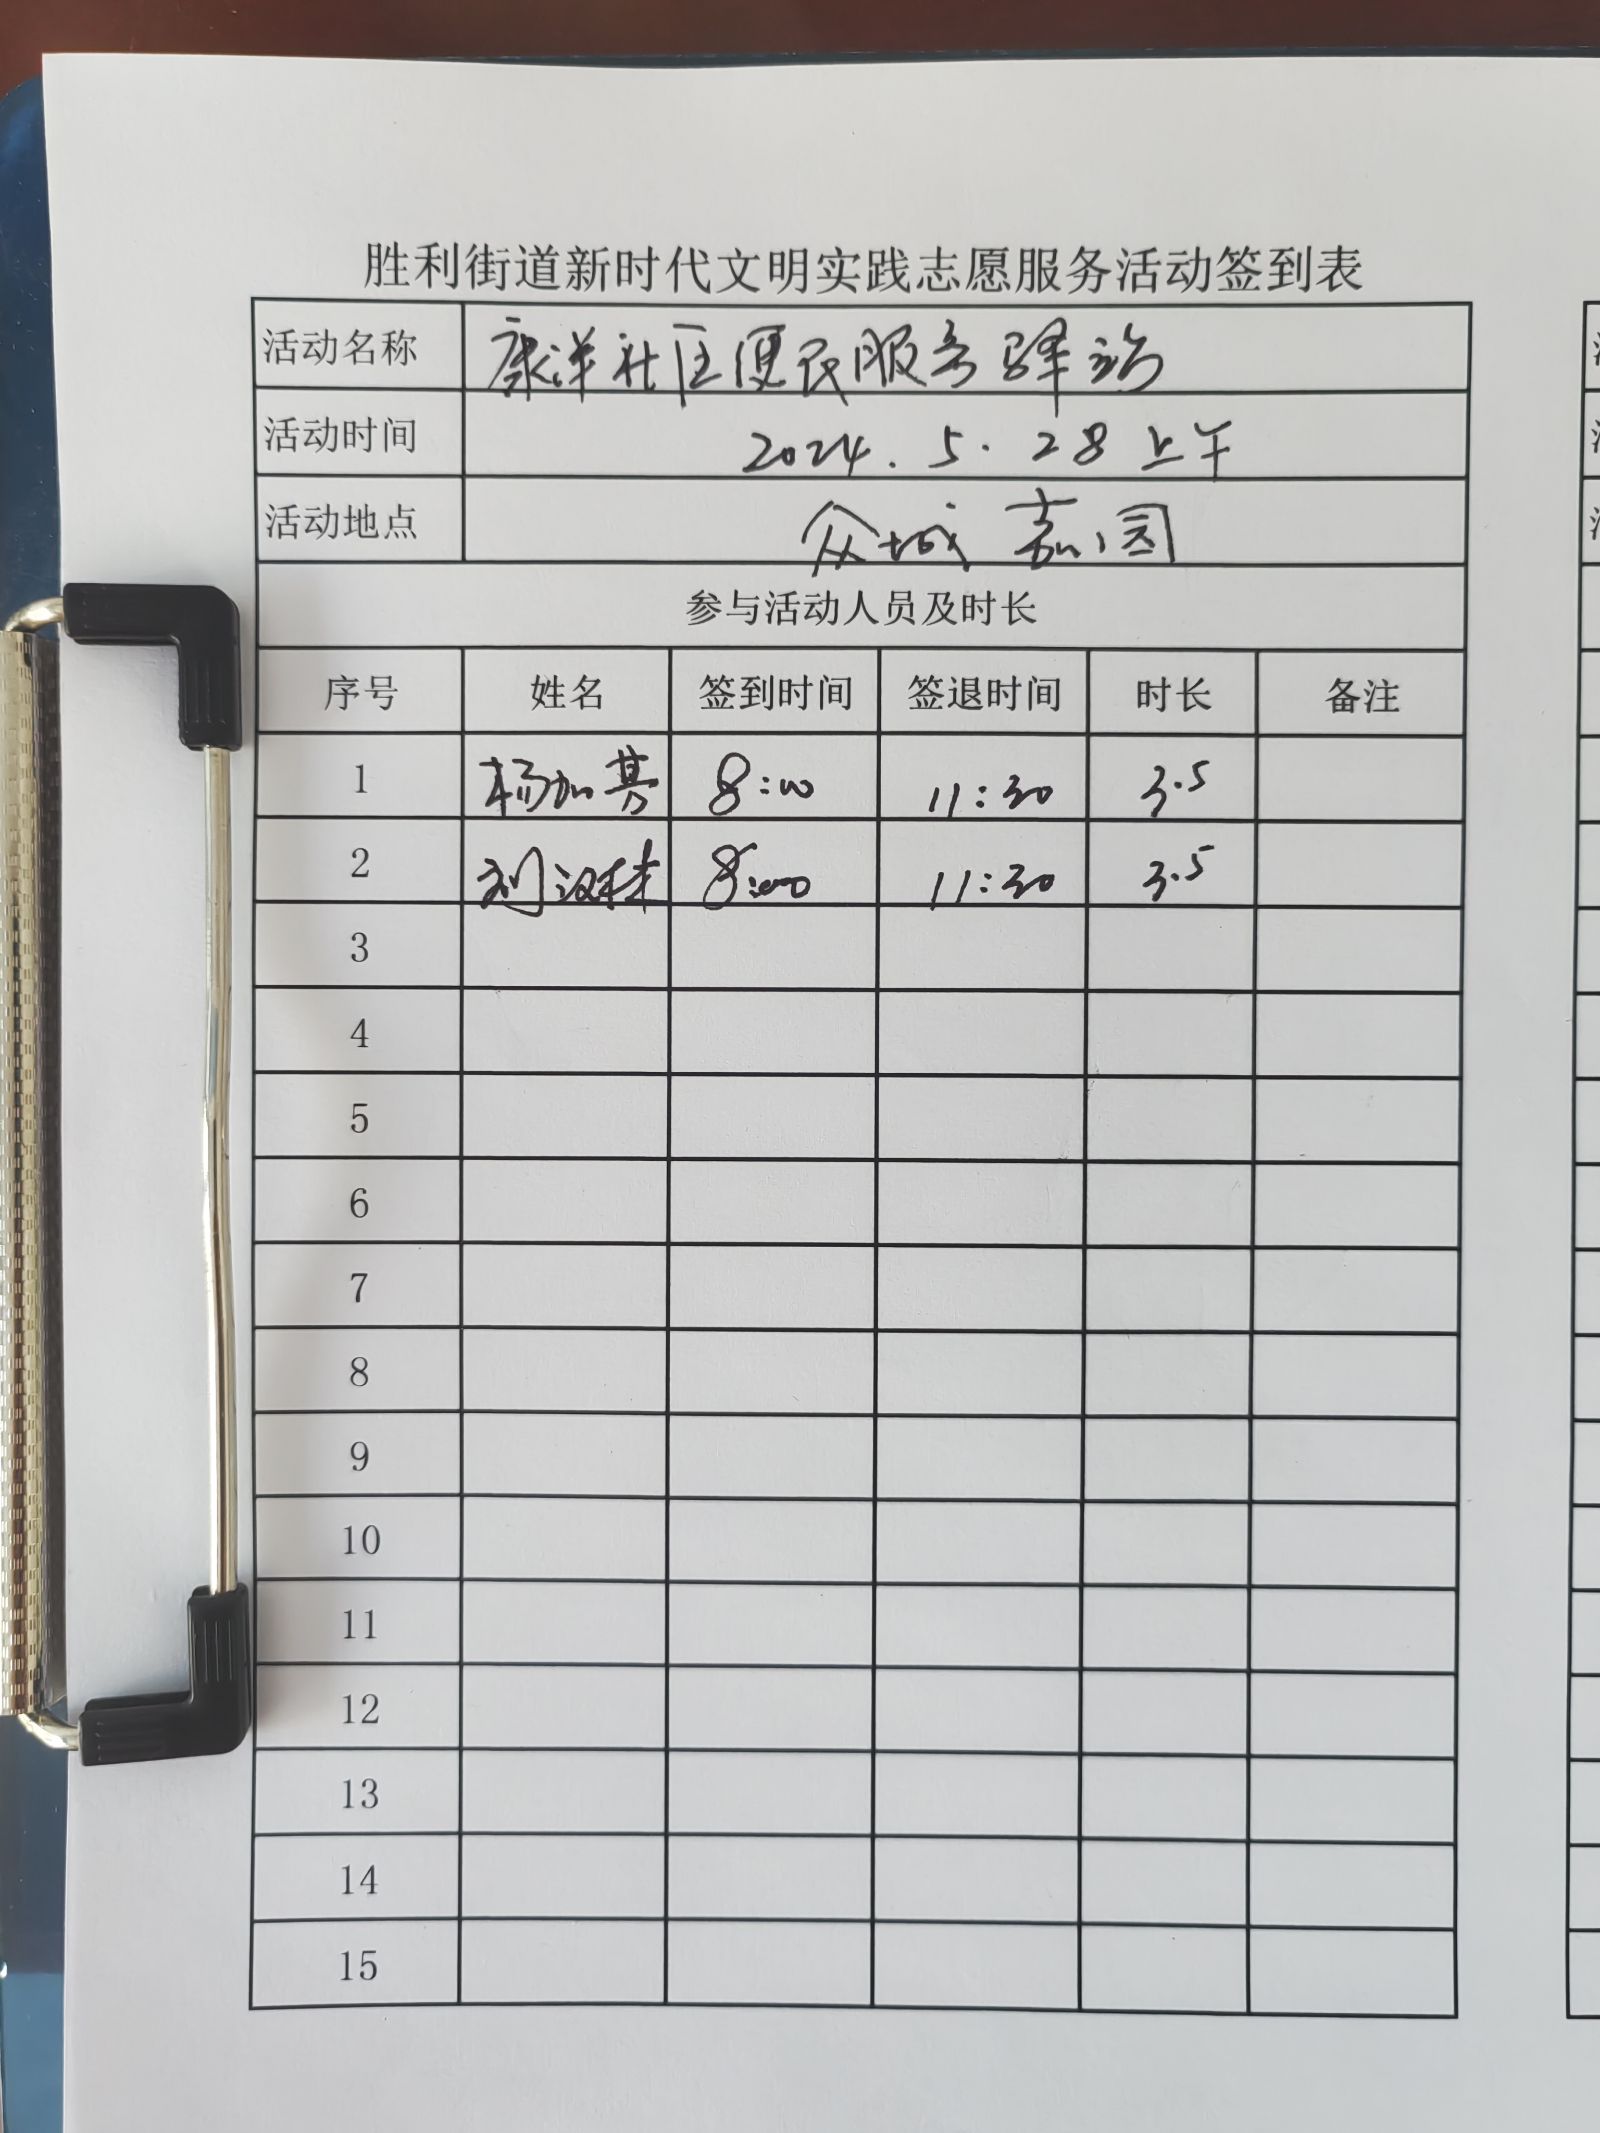 胜利街道新时代文明实践志愿服务活动签到表
活动名称 康洋社区便民服务驿站
活动时间 2024.5.28上午
活动地点 众城嘉园
参与活动人员及时长
序号 姓名 签到时间 签退时间 时长 备注
1 杨加 8:00 11:30 3.5
2 刘汉林 8:00 11:30 3.5
3
4
5
6
7
8
9
10
11
12
13
14
15